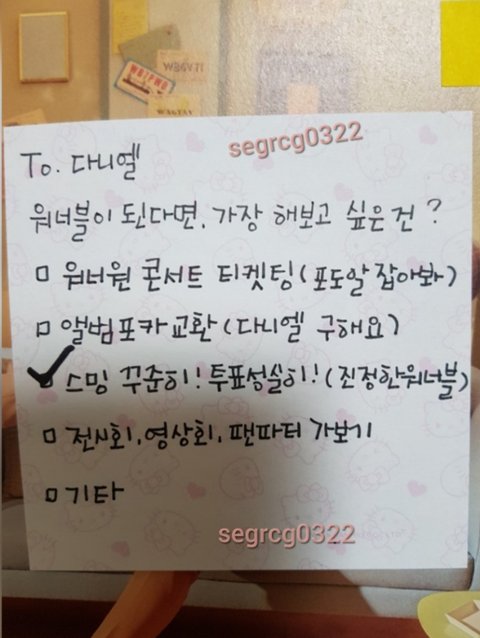 To. 다니엘
segrcg0322
워너블이 된다면, 가장 해보고 싶은건?
□ 워너원 콘서트 티켓팅(포도알 잡아봐)
□ 앨범포카교환(다니엘 구해요)
✓ 스밍 꾸준히! 투표성실히!(진정한워너블)
□ 전시회, 영상회, 팬파터 가보기
□ 기타
segrcg0322